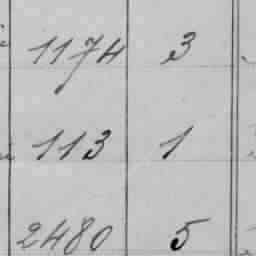 1174 3
113 1
2480 5